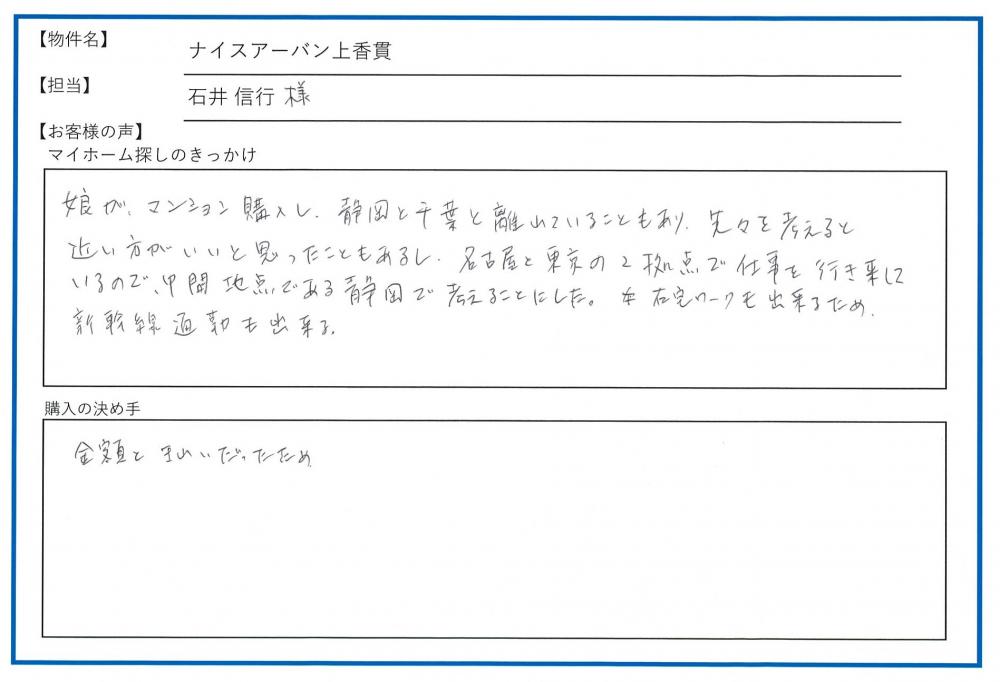 【物件名】 ナイスアーバン上香貫
【担当】 石井 信行 様
【お客様の声】
マイホーム探しのきっかけ
娘が、マンション購入し、静岡と千葉と離れていることもあり、先々を考えると
近い方がいいと思ったこともあるし、名古屋と東京の2拠点で仕事を行き来して
いるので、中間地点である静岡で考えることにした。 在宅ワークも出来るため、
新幹線通勤も出来る。
購入の決め手
金額と いだったため